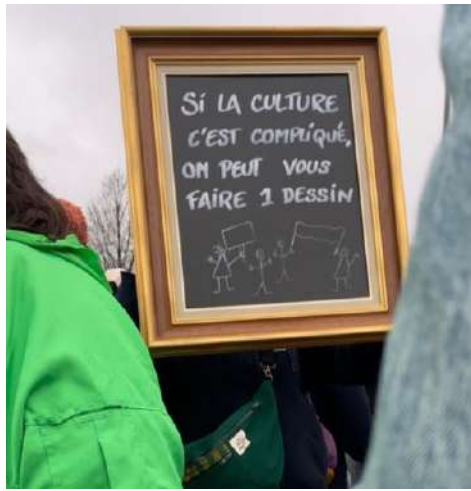 Si LA CULTURE
C'EST COMPLiQUÉ,
ON PEUT VOUS
FAIRE 1 DESSIN